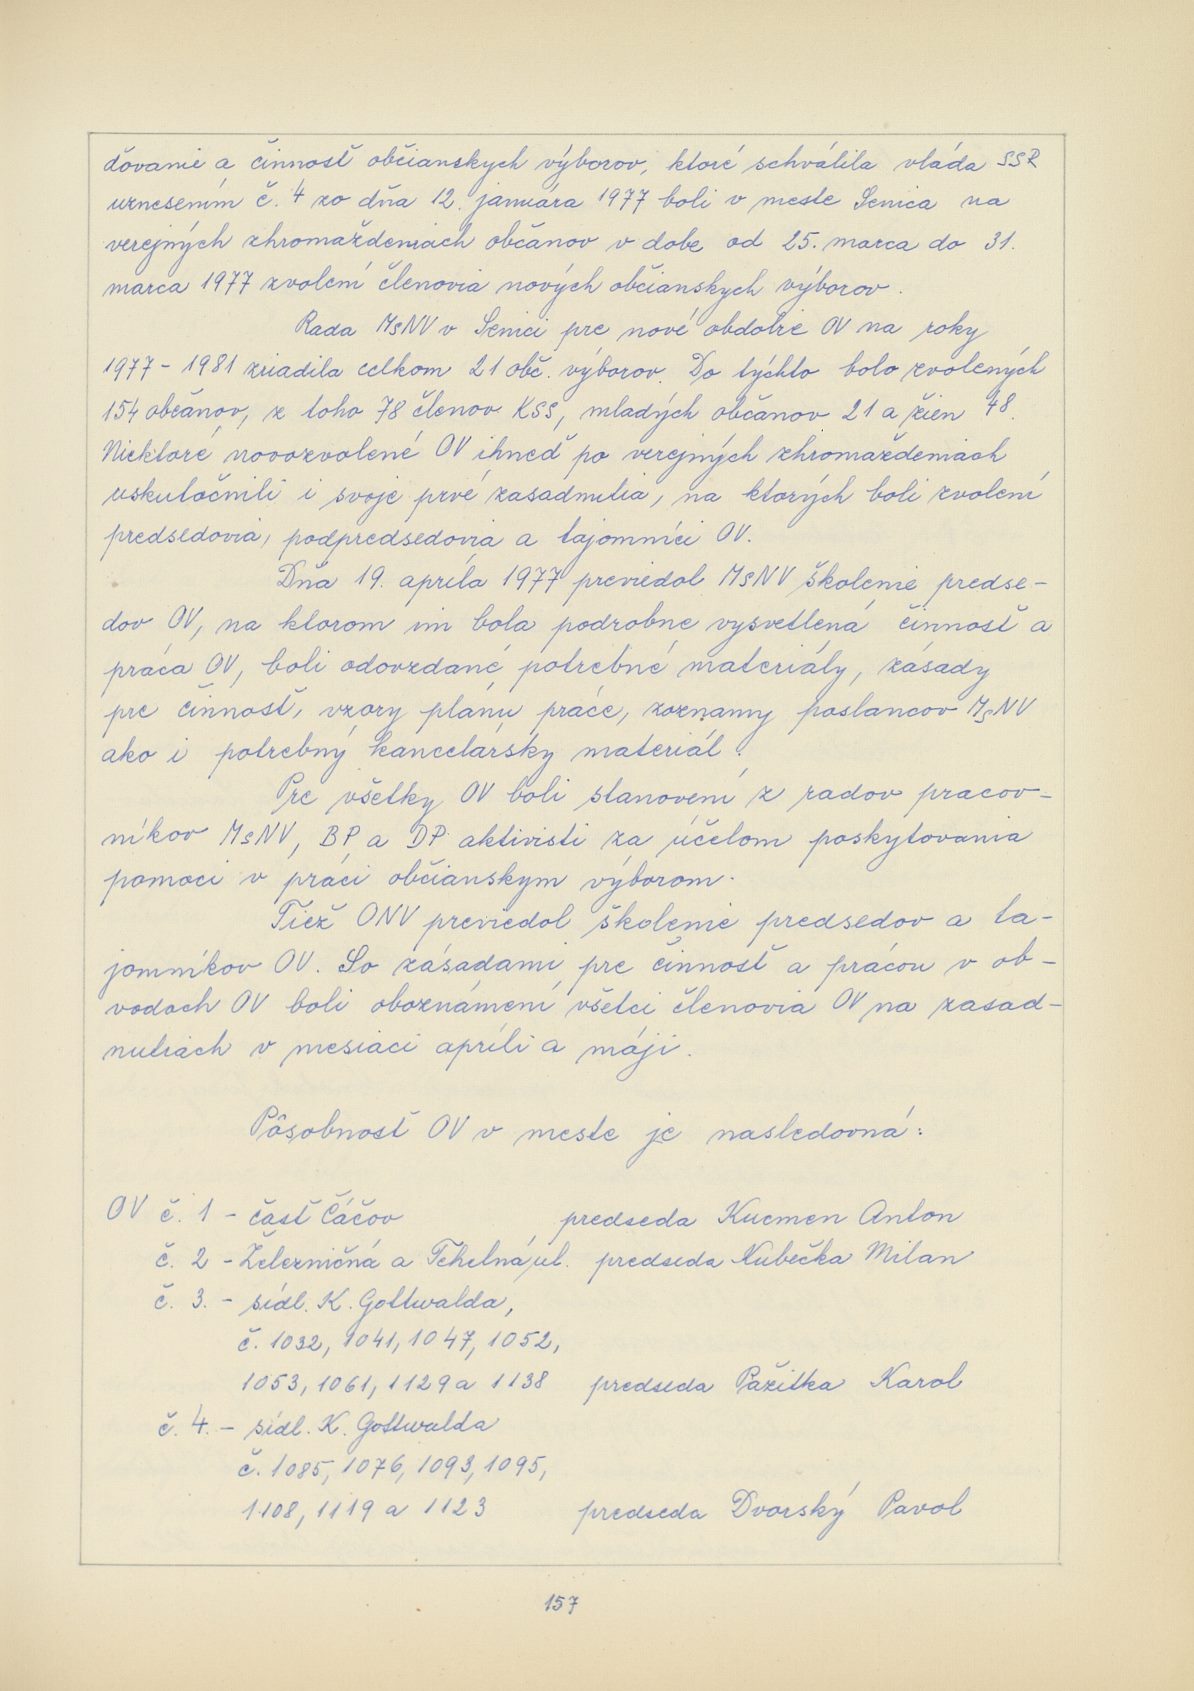 ďovanie a činnosť občianskych výborov, ktoré schválila vláda SSR
uznesením č. 4 zo dňa 12. januára 1977 boli v meste Senica na
verejných zhromaždeniach občanov v dobe od 25. marca do 31.
marca 1977 zvolení členovia nových občianskych výborov.
Rada MsNV v Senici pre nové obdobie OV na roky
1977 - 1981 zriadila celkom 21 obč. výborov. Do týchto bolo zvolených
154 občanov, z toho 78 členov KSS, mladých občanov 21 a žien 48.
Niektoré novozvolené OV ihneď po verejných zhromaždeniach
uskutočnili i svoje prvé zasadnutia, na ktorých boli zvolení
predsedovia, podpredsedovia a tajomníci OV.
Dňa 19. apríla 1977 previedol MsNV školenie predse-
dov OV, na ktorom im bola podrobne vysvetlená činnosť a
práca OV, boli odovzdané potrebné materiály, zásady
pre činnosť, vzory plánu práce, zoznamy poslancov MsNV
ako i potrebný kancelársky materiál.
Pre všetky OV boli stanovení z radov pracov-
níkov MsNV, BP a DP aktivisti za účelom poskytovania
pomoci v práci občianskym výborom.
Tiež ONV previedol školenie predsedov a ta-
jomníkov OV. So zásadami pre činnosť a prácou v ob-
vodoch OV boli oboznámení všetci členovia OV na zasad-
nutiach v mesiaci apríli a máji.
Pôsobnosť OV v meste je nasledovná:
OV č. 1 - časť Čáčov predseda Kucmen Anton
č. 2 - Železničná a Tehelná ul. predseda Kubečka Milan
č. 3. - sídl. K. Gottwalda,
č. 1032, 1041, 1047, 1052,
1053, 1061, 1129 a 1138 predseda Pažitka Karol
č. 4. - sídl. K. Gottwalda
č. 1085, 1076, 1093, 1095,
1108, 1119 a 1123 predseda Dvorský Pavol
157